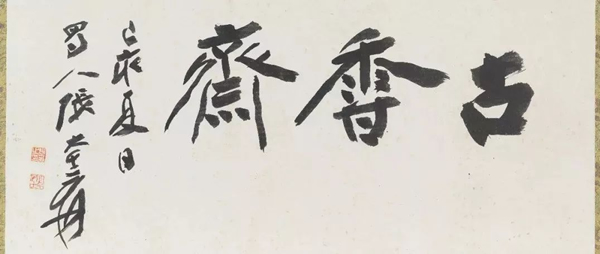 古香齋
己亥夏日
蜀人張大千爰